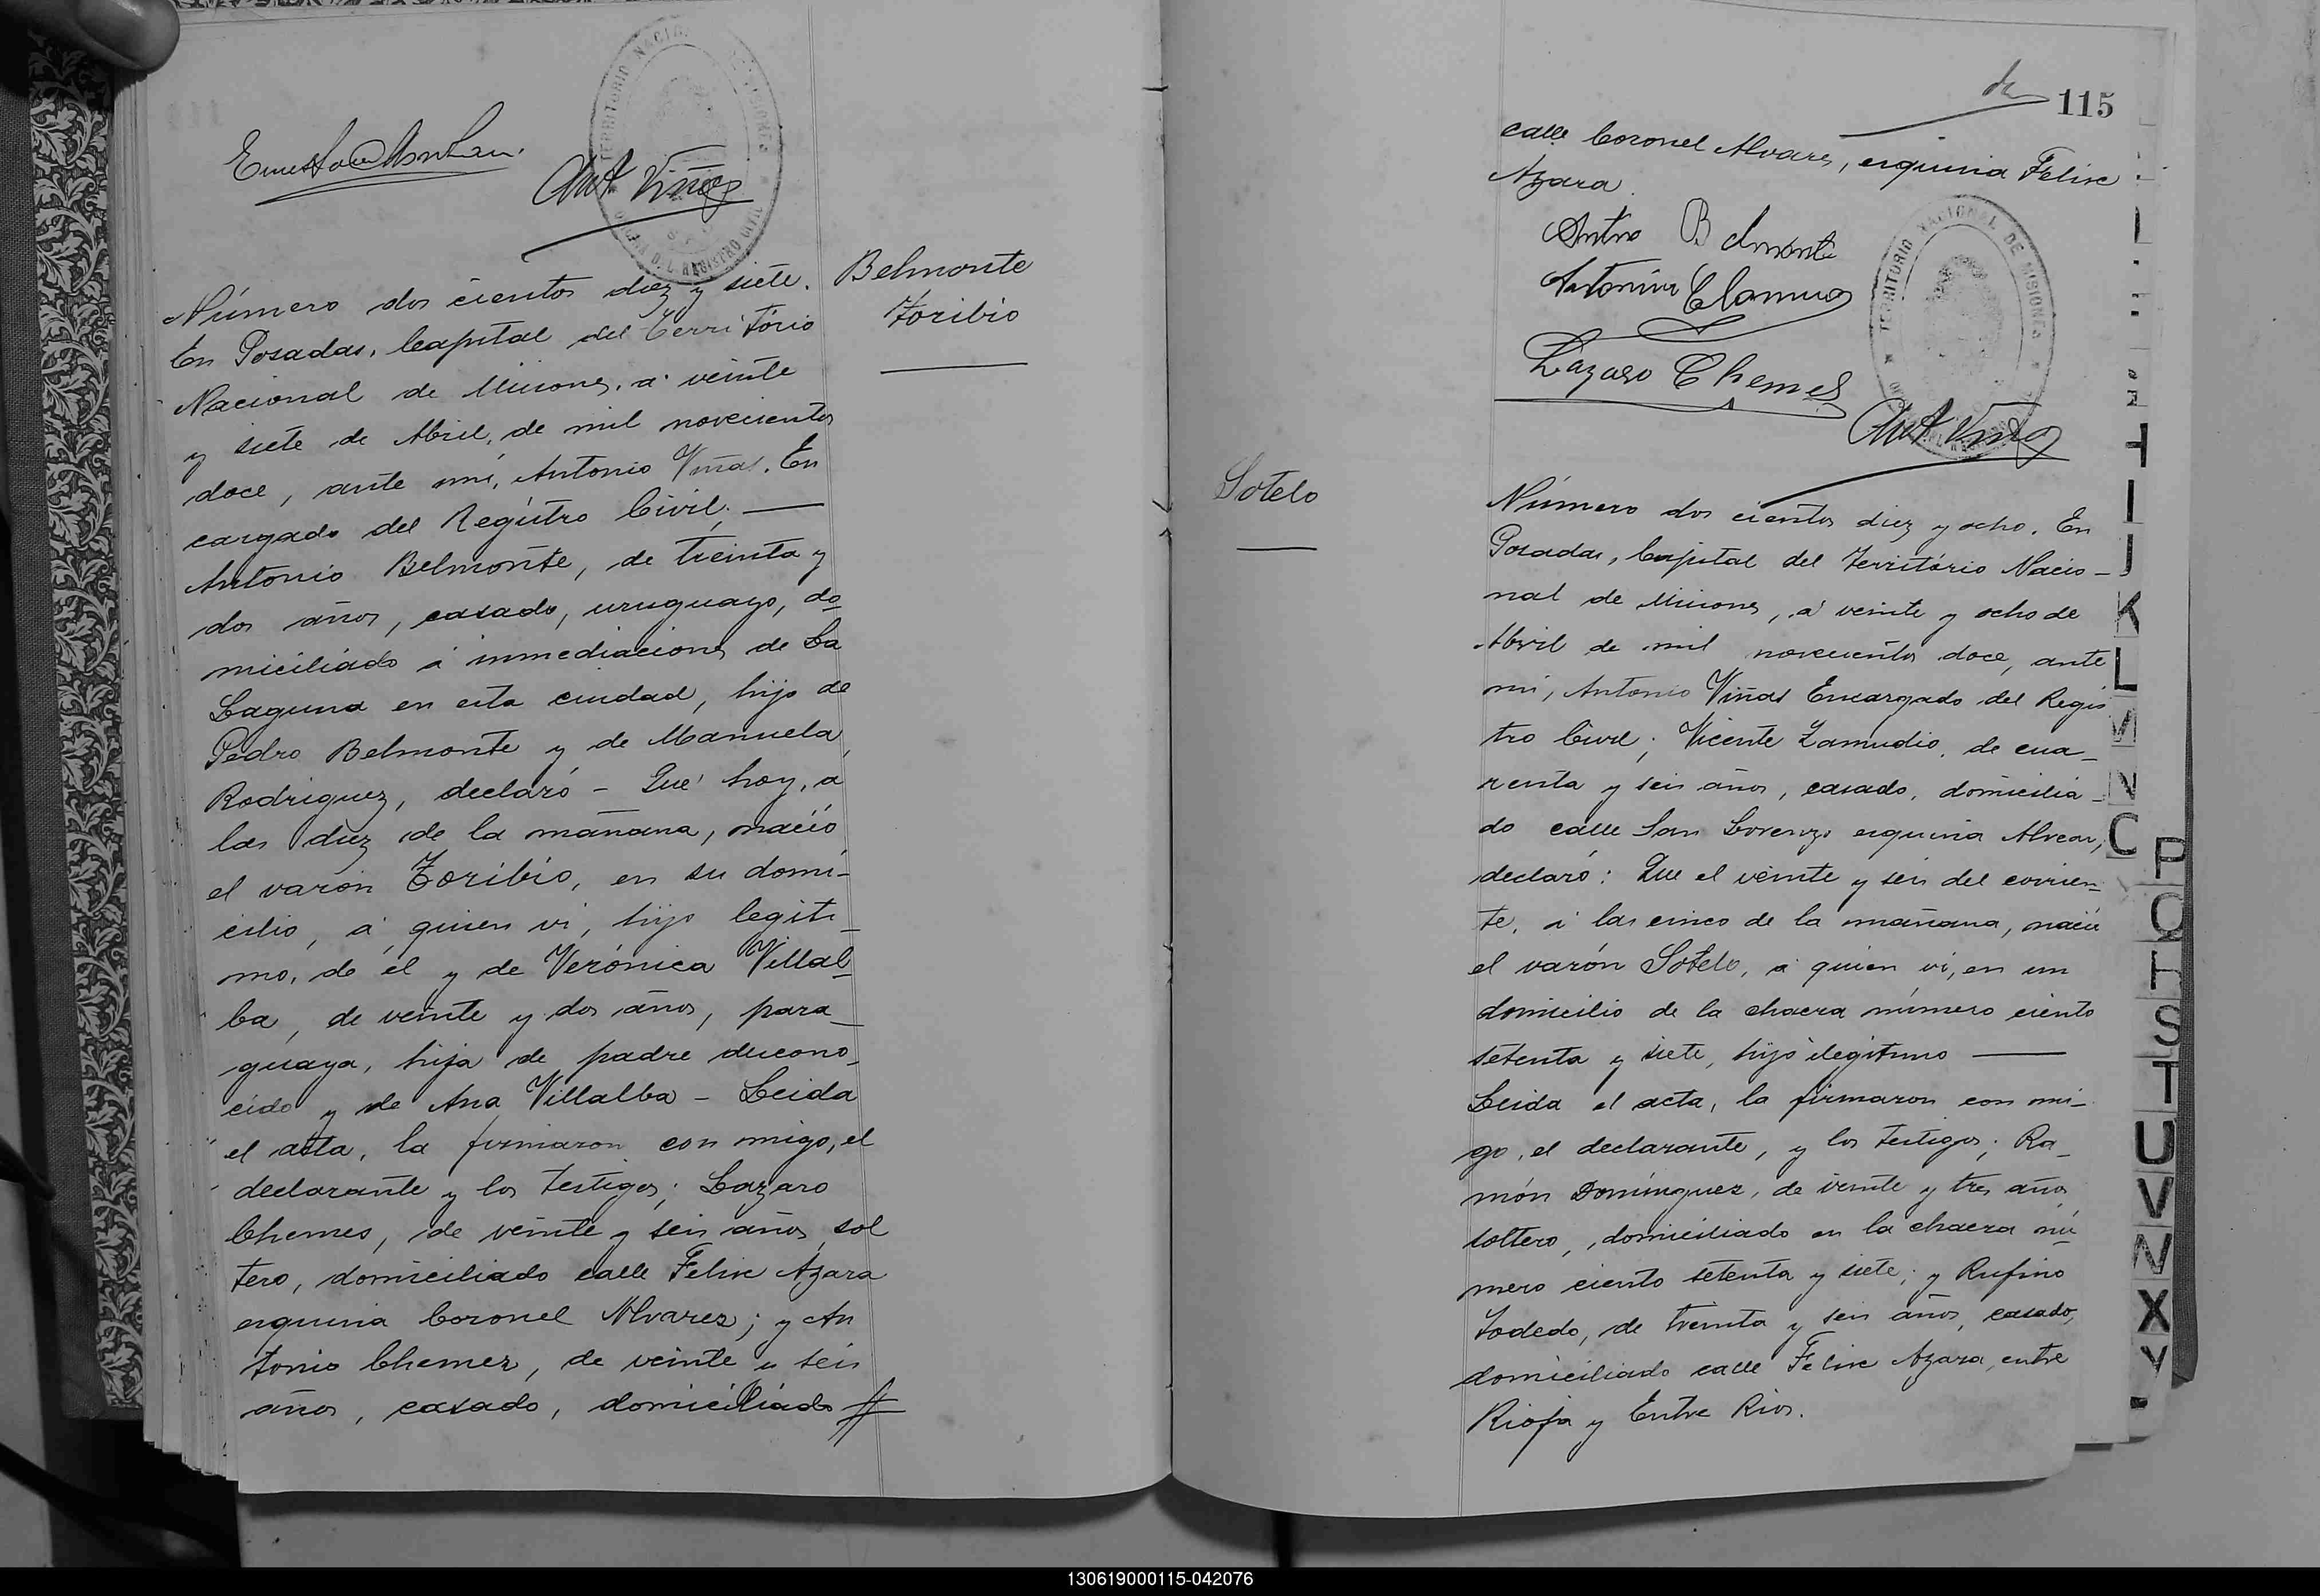 Ant Viñas
Número dos cientos diez y siete.
En Posadas, Capital del Territorio
Nacional de Misiones, á veinte
y siete de Abril, de mil novecientos
doce, ante mí, Antonio Viñas, En
cargado del Registro Civil; —
Antonio Belmonte, de treinta y
dos años, casado, uruguayo, do
miciliado á inmediaciones de La
Laguna en esta ciudad, hijo de
Pedro Belmonte y de Manuela
Rodriguez, declaró - Qué hoy, á
las diez de la mañana, nació
el varón Toribio, en su domi-
cilio, á quien vi, hijo legiti-
mo, de él y de Verónica Villal-
ba, de veinte y dos años, para-
guaya, hija de padre descono-
cido y de Ana Villalba - Leida
el acta, la firmaron con migo, el
declarante y los testigos; Lazaro
Chemes, de veinte y seis años, sol
tero, domiciliado calle Felix Azara
esquina Coronel Alvarez; y An
tonio Chemes, de veinte y seis
años, casado, domiciliado #
Belmonte
Toribio
115
calle Coronel Alvares, esquina Felix
Azara.
Antno Belmonte
Lazaro Chemes
TERRITORIO NACIONAL DE MISIONES
Ant Viñas
Sotelo
Número dos cientos diez y ocho. En
Posadas, Capital del Território Nacio-
nal de Misiones, á veinte y ocho de
Abril de mil novecientos doce, ante
mí, Antonio Viñas Encargado del Regis
tro Civil; Vicente Zamudio, de cua-
renta y seis años, casado, domicilia-
do calle San Lorenzo esquina Alvear,
declaró: Que el veinte y seis del corrien-
te, á las cinco de la mañana, nació
el varón Sotelo, á quien vi, en un
domicilio de la chacra número ciento
setenta y siete, hijo ilegitimo —
Leida el acta, la firmaron con mi-
go, el declarante, y los testigos; Ra-
món Domínguez, de veinte y tres años
soltero, domiciliado en la chacra nú
mero ciento setenta y siete; y Rufino
Todedo, de treinta y seis años, casado,
domiciliado calle Felix Azara, entre
Rioja y Entre Rios.
K
L
M
N
P
S
T
U
V
X
Y
130619000115-042076